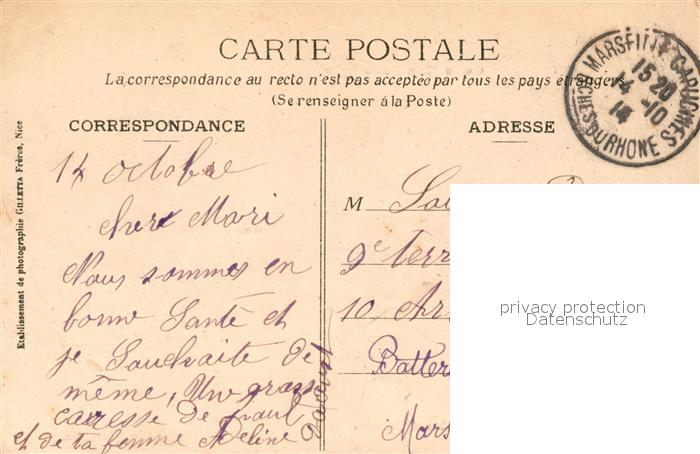 CARTE POSTALE
La correspondance au recto n'est pas acceptée par tous les pays étrangers
(Se renseigner á la Poste)
CORRESPONDANCE
ADRESSE
MARSEILLE CAPUCINES
15 20
14 -10
14
BCHES DU RHONE
Etablissement de photographie GILLETTA Frères, Nice
14 octobre
cher Mari
Nous sommes en
bonne Santé et
je Souhaite de
même, Une grosse
caresse de Paul
et de ta femme Adeline
M
9e Terr
10 Ar
Batter
Mars
privacy protection
Datenschutz